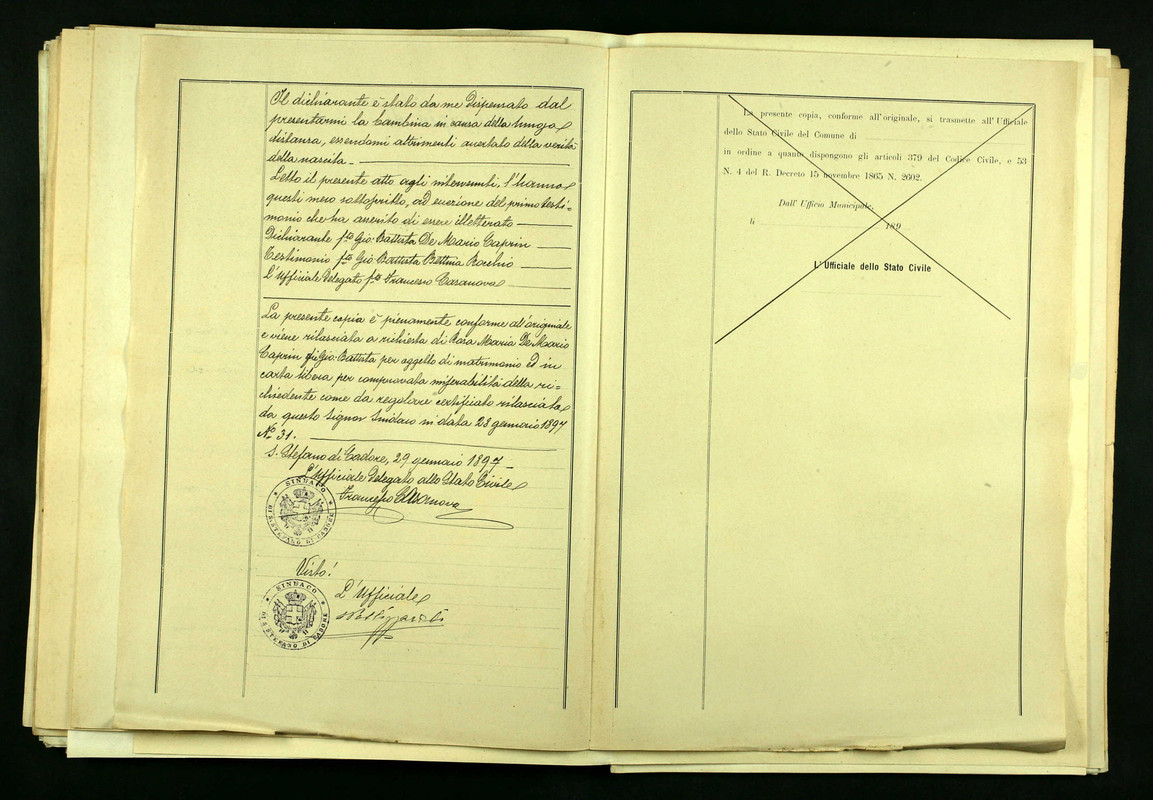 Il dichiarante è stato da me dispensato dal
presentarmi la bambina in causa della lunga
distanza, essendomi altrimenti accertato della verità
della nascita.
Letto il presente atto agli intervenuti, l'hanno
questi meco sottoscritto, ad eccezione del primo testi=
monio che ha asserito di essere illetterato
Dichiarante fto Gio. Battista De Mario Caprin
Testimonio fto Gio Battista Bettina Rocchio
L'Ufficiale Delegato fto Francesco Casanova
La presente copia è pienamente conforme all'originale
e viene rilasciata a richiesta di Rosa Maria De Mario
Caprin di Gio. Battista per oggetto di matrimonio ed in
carta libera per comprovata miserabilità della ri=
chiedente come da regolare certificato rilasciato
da questo Signor Sindaco in data 28 gennaio 1897
No 31.
S. Stefano di Cadore, 29 gennaio 1897
L'Ufficiale Delegato allo Stato Civile
Francesco Casanova
SINDACO
DI S. STEFANO DI CADORE
Visto!
L'Ufficiale
SINDACO
DI S. STEFANO DI CADORE
La presente copia, conforme all'originale, si trasmette all'Ufficiale
dello Stato Civile del Comune di
in ordine a quanto dispongono gli articoli 379 del Codice Civile, e 53
N. 4 del R. Decreto 15 novembre 1865 N. 2602.
Dall' Ufficio Municipale,
li 189
L' Ufficiale dello Stato Civile